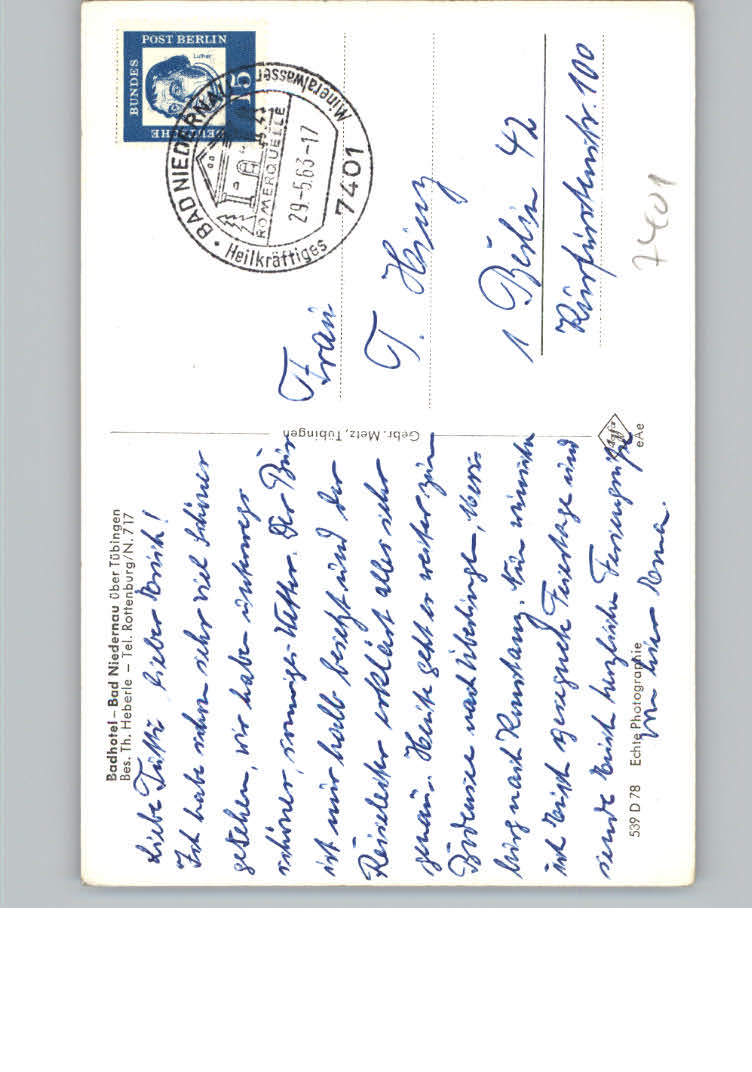 Badhotel – Bad Niedernau über Tübingen
Bes. Th. Heberle – Tel. Rottenburg/N. 717
Liebe Tutti lieber Erich!
Ich habe schon sehr viel Schönes
gesehen, wir haben unterwegs
schönes, sonniges Wetter. Der Bus
ist nur halb besetzt und der
Reiseleiter erklärt alles sehr
genau. Heute geht es weiter zum
Bodensee nach Überlingen, Meers-
burg nach Konstanz. Nun wünsche
ich Euch gesegnete Feiertage und
sende Euch herzliche Feriengrüße
Eure Erna.
539 D 78 Echte Photographie
Gebr. Metz, Tübingen
Agfa
eAe
DEUTSCHE BUNDES POST BERLIN
Luther
15
BAD NIEDERNAU
Heilkräftiges Mineralwasser
RÖMERQUELLE
29.-5.63-17
7401
Frau
T. Heinz
1 Berlin 42
Kurfürstenstr. 100
7401